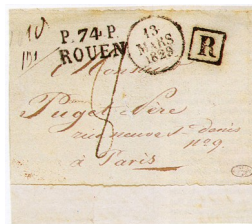 P.74.P.
ROUEN
13
MARS
1829
R
A Monsieur
Puget Père
rue neuve St denis
n° 29.
à Paris